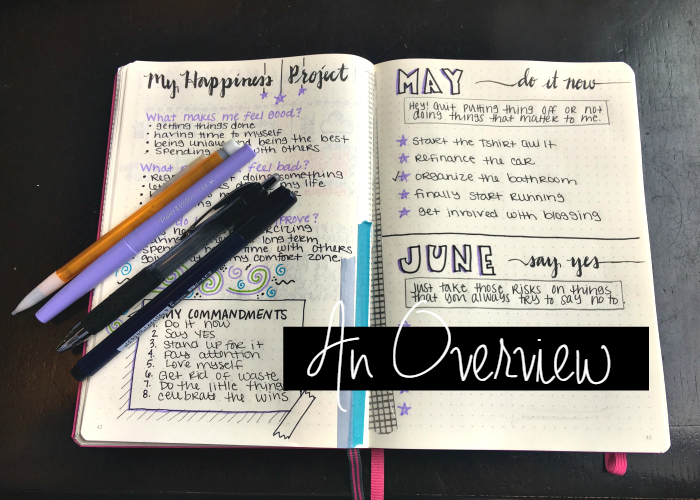 My Happiness Project
What makes me feel good?
• getting things done
• having time to myself
• being unique and being the best
• spending with others
What feel bad?
doing something
my life
prove?
long term
time with others
my comfort zone
MY COMMANDMENTS
1. Do it now
2. Say YES
3. Stand up for it
4. Pay attention
5. Love myself
6. Get rid of waste
7. Do the little things
8. celebrate the wins
42
MAY do it now
Hey! Quit putting thing off or not
doing things that matter to me.
start the Tshirt quilt
refinance the car
organize the bathroom
finally start running
get involved with blogging
JUNE say yes
Just take those risks on things
that you always try to say no to.
An Overview
43